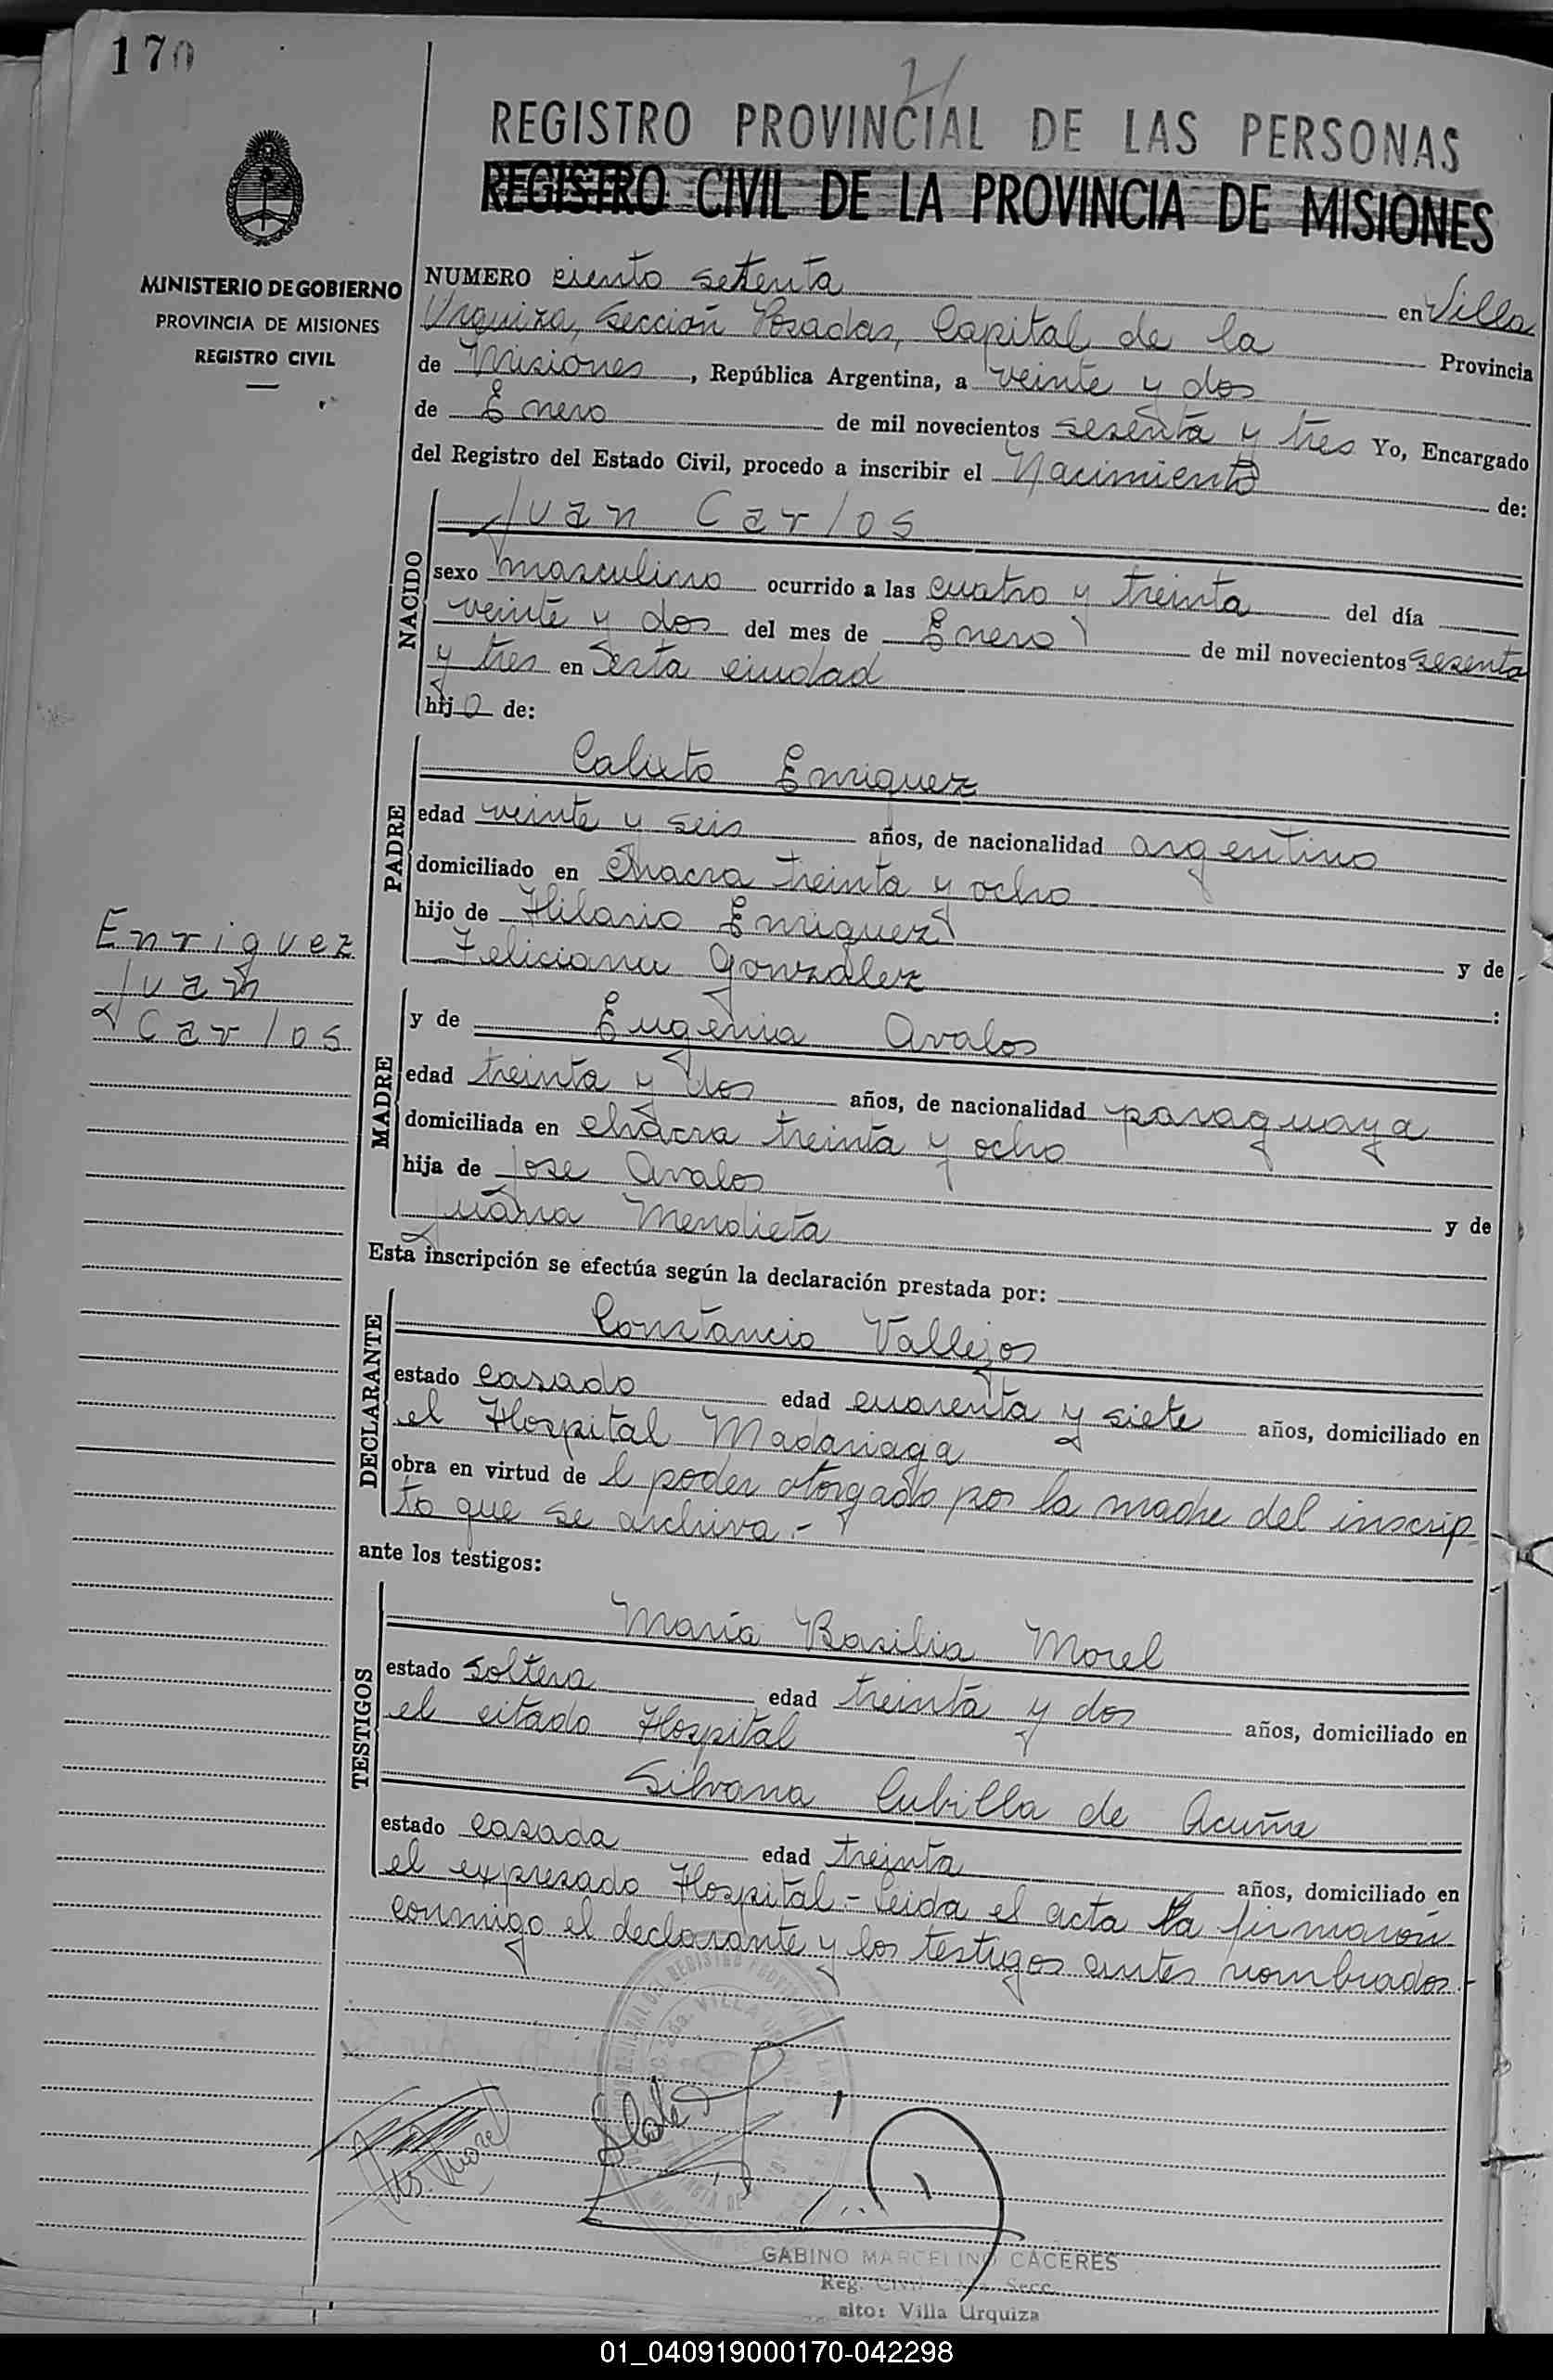 170
21
REGISTRO PROVINCIAL DE LAS PERSONAS
REGISTRO CIVIL DE LA PROVINCIA DE MISIONES
MINISTERIO DE GOBIERNO
PROVINCIA DE MISIONES
REGISTRO CIVIL
NUMERO ciento setenta en Villa
Urquiza, Sección Posadas, Capital de la Provincia
de Misiones, República Argentina, a veinte y dos
de Enero de mil novecientos sesenta y tres Yo, Encargado
del Registro del Estado Civil, procedo a inscribir el Nacimiento de:
NACIDO
Juan Carlos
sexo masculino ocurrido a las cuatro y treinta del día
veinte y dos del mes de Enero de mil novecientos sesenta
y tres en Sesta ciudad
hijo de:
PADRE
Calixto Enriquez
edad veinte y seis años, de nacionalidad argentino
domiciliado en Chacra treinta y ocho
hijo de Hilario Enriquez y de
Feliciana Gonzalez
Enriquez
Juan
Carlos
MADRE
y de Eugenia Avalos :
edad treinta y dos años, de nacionalidad paraguaya
domiciliada en chacra treinta y ocho
hija de Jose Avalos y de
Juana Mendieta
Esta inscripción se efectúa según la declaración prestada por:
DECLARANTE
Constancio Vallejos
estado casado edad cuarenta y siete años, domiciliado en
el Hospital Madariaga
obra en virtud de l poder otorgado por la madre del inscrip-
to que se archiva.-
ante los testigos:
TESTIGOS
María Basilia Morel
estado soltera edad treinta y dos años, domiciliado en
el citado Hospital
Silvana Cubilla de Acuña
estado casada edad treinta años, domiciliado en
el expresado Hospital.- Leida el acta la firmaron
conmigo el declarante y los testigos antes nombrados.-
VILLA
B. Morel
GABINO MARCELINO CACERES
Reg. Civil Secc.
sito: Villa Urquiza
01_040919000170-042298